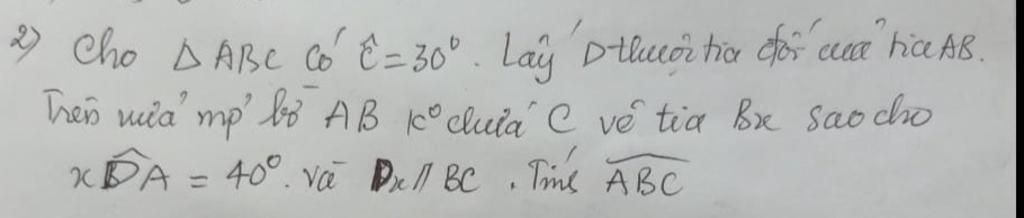 2) Cho Δ ABC có Ĉ = 30°. Lấy D thuộc tia đối của tia AB.
Trên nửa mp bờ AB k° chứa C vẽ tia Bx sao cho
xD̂A = 40°. và Dx // BC. Tính \widehat{ABC}